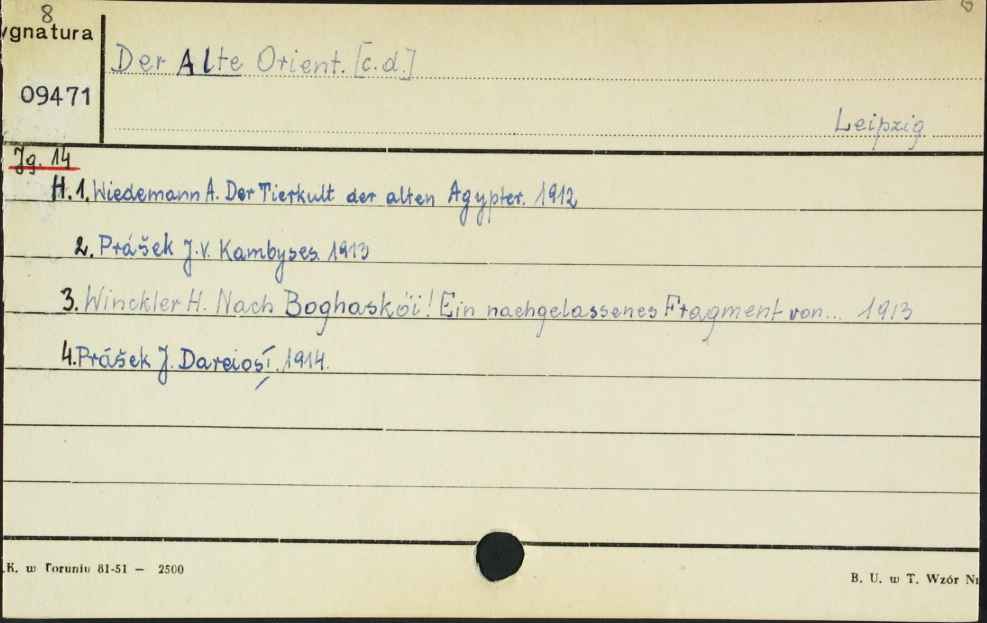 8
ygnatura
Der Alte Orient. [c.d.]
09471
Leipzig
Jg. 14
H. 1. Wiedemann A. Der Tierkult der alten Agypter. 1912
2. Prášek J.V. Kambyses. 1913
3. Winckler H. Nach Boghasköi! Ein nachgelassenes Fragment von... 1913
4. Prášek J. Dareios I. 1914.
.K. w Toruniu 81-51 — 2500
B. U. w T. Wzór Nr